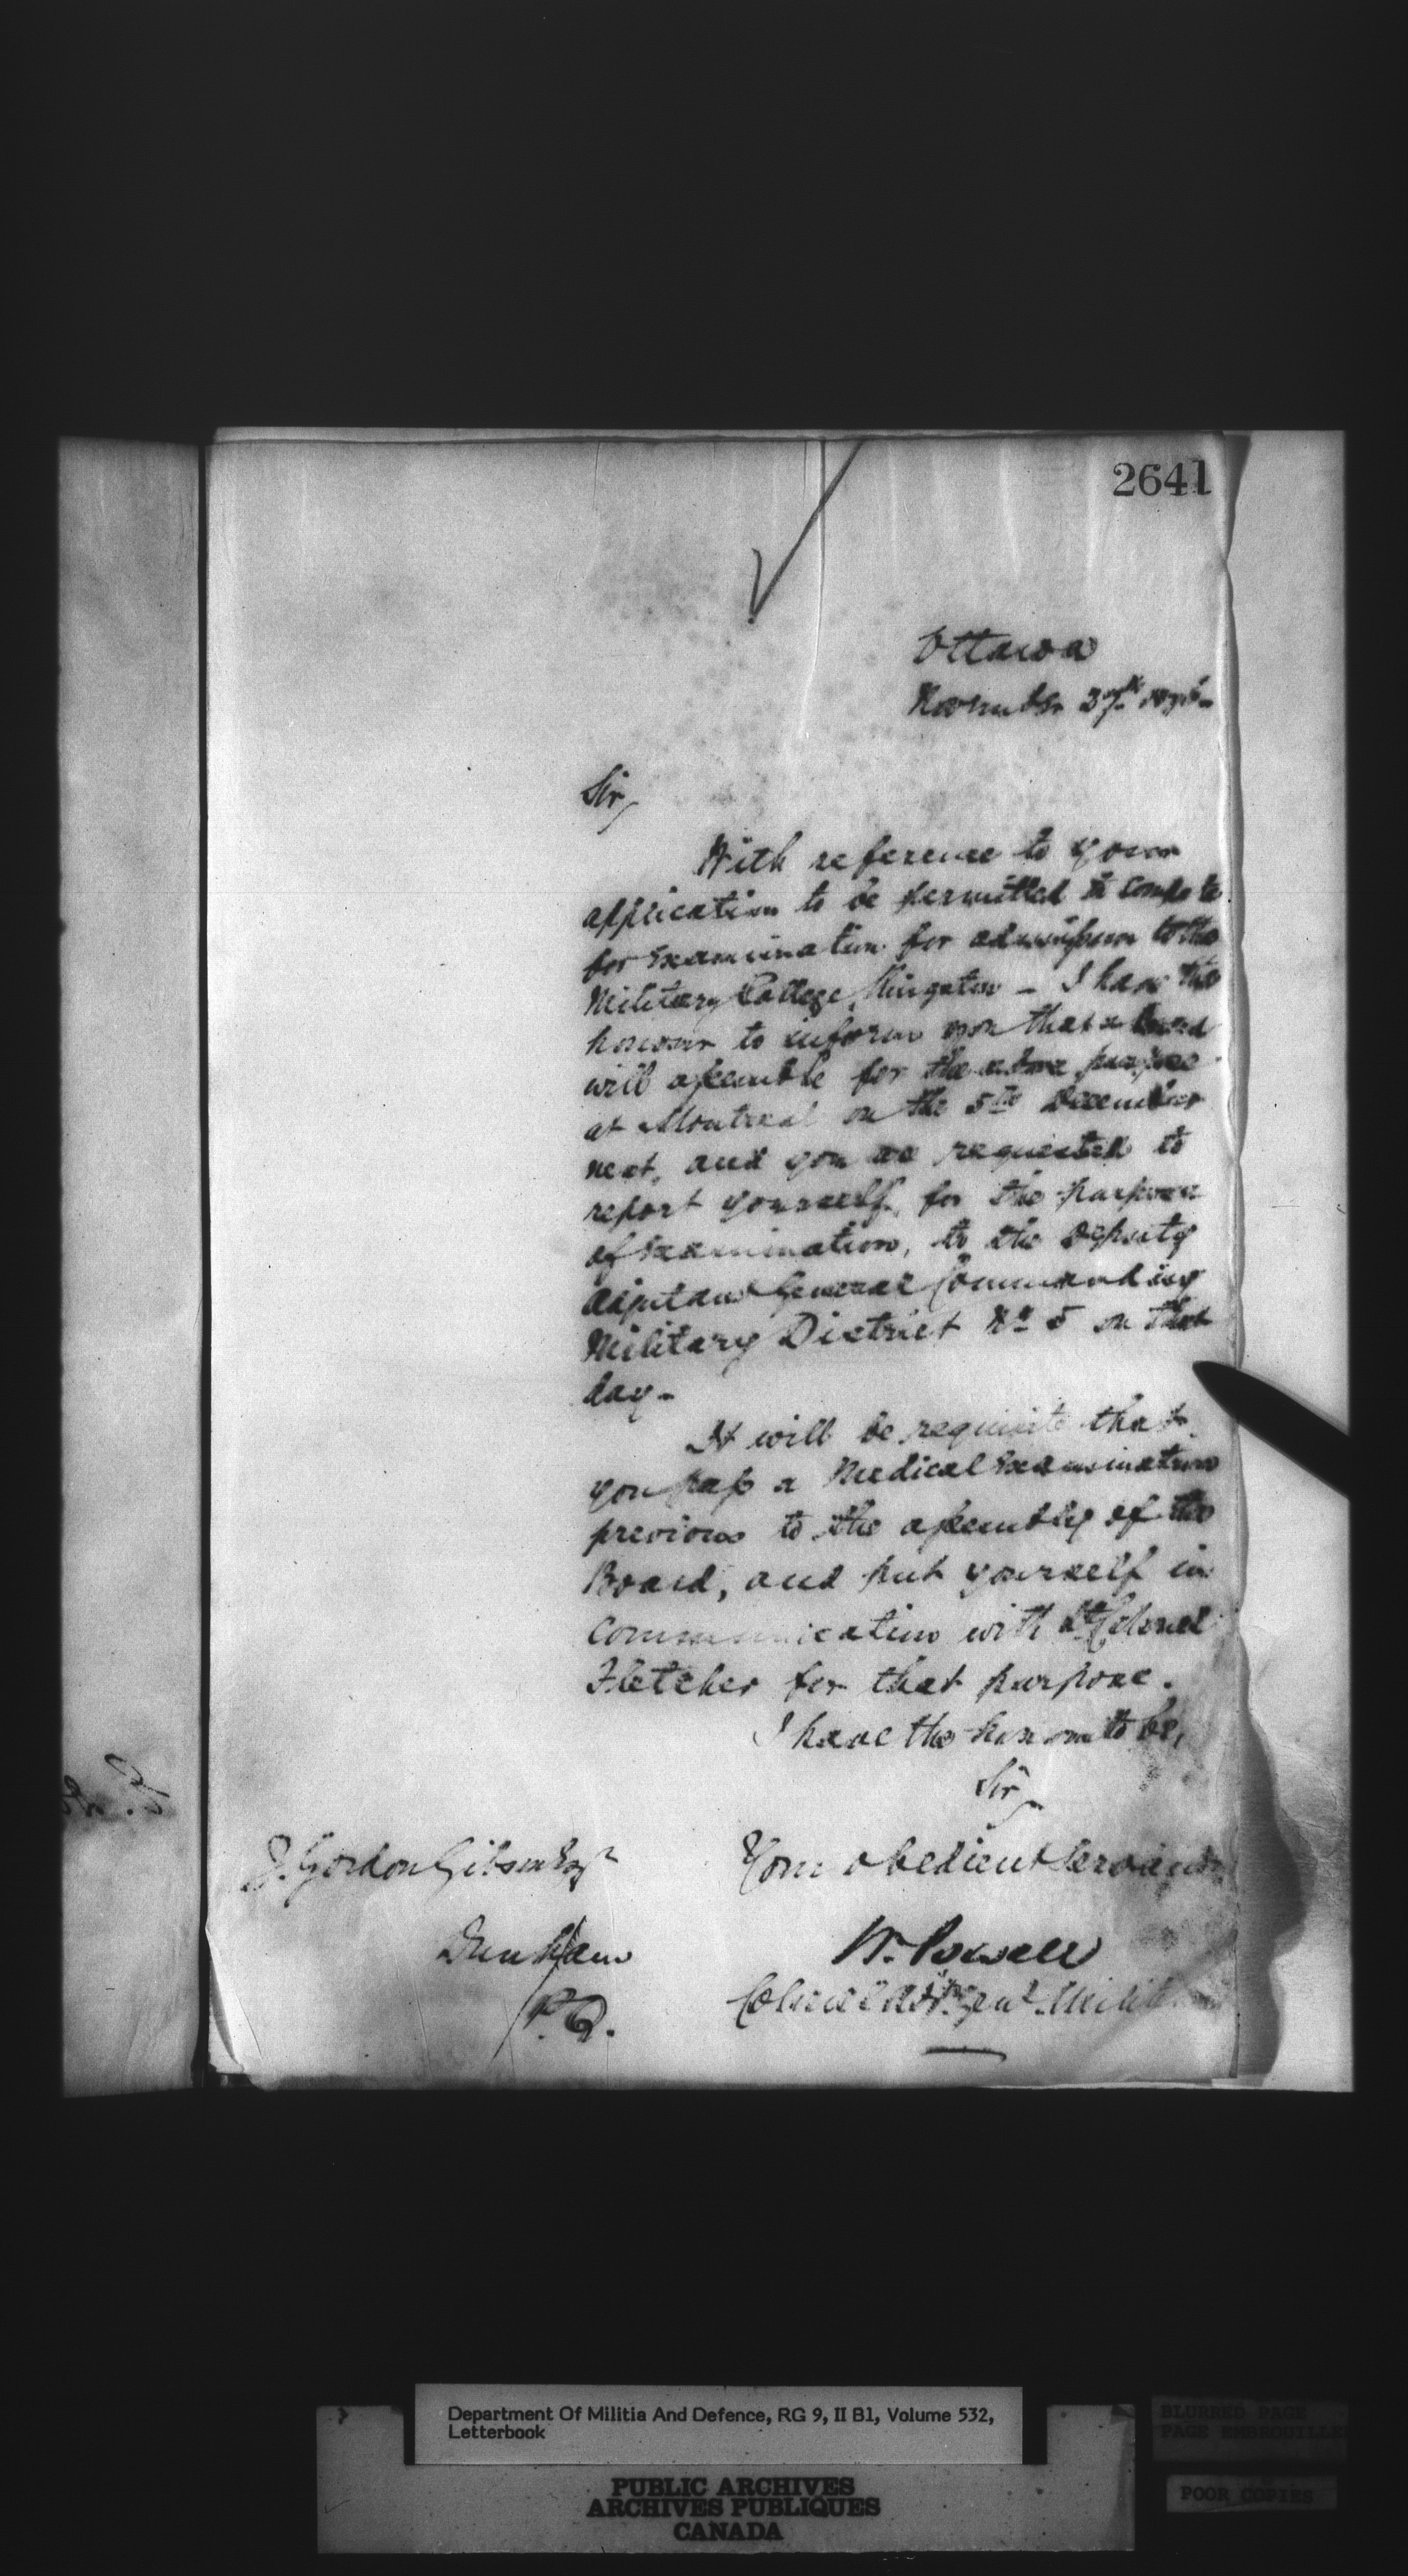 2641
Ottawa
November 27th 1876
Sir,
With reference to your
application to be permitted to compete
for examination for admission to the
Military College, Kingston - I have the
honour to inform you that a Board
will assemble for the above purpose
at Montreal on the 5th December
next, and you are requested to
report yourself, for the purpose
of Examination, to the Deputy
Adjutant General Commanding
Military District No 5 on that
day -
It will be requisite that
you pass a Medical Examination
previous to the assembly of the
Board, and put yourself in
communication with Lt Colonel
Fletcher for that purpose.
I have the honour to be,
Sir,
Your obedient Servant
J. Gordon Gibson Esqr
Dunham
P.Q.
W. Powell
Colonel Adjt Genl Militia
Department Of Militia And Defence, RG 9, II B1, Volume 532,
Letterbook
PUBLIC ARCHIVES
ARCHIVES PUBLIQUES
CANADA
BLURRED PAGE
PAGE EMBROUILLE
POOR COPIES